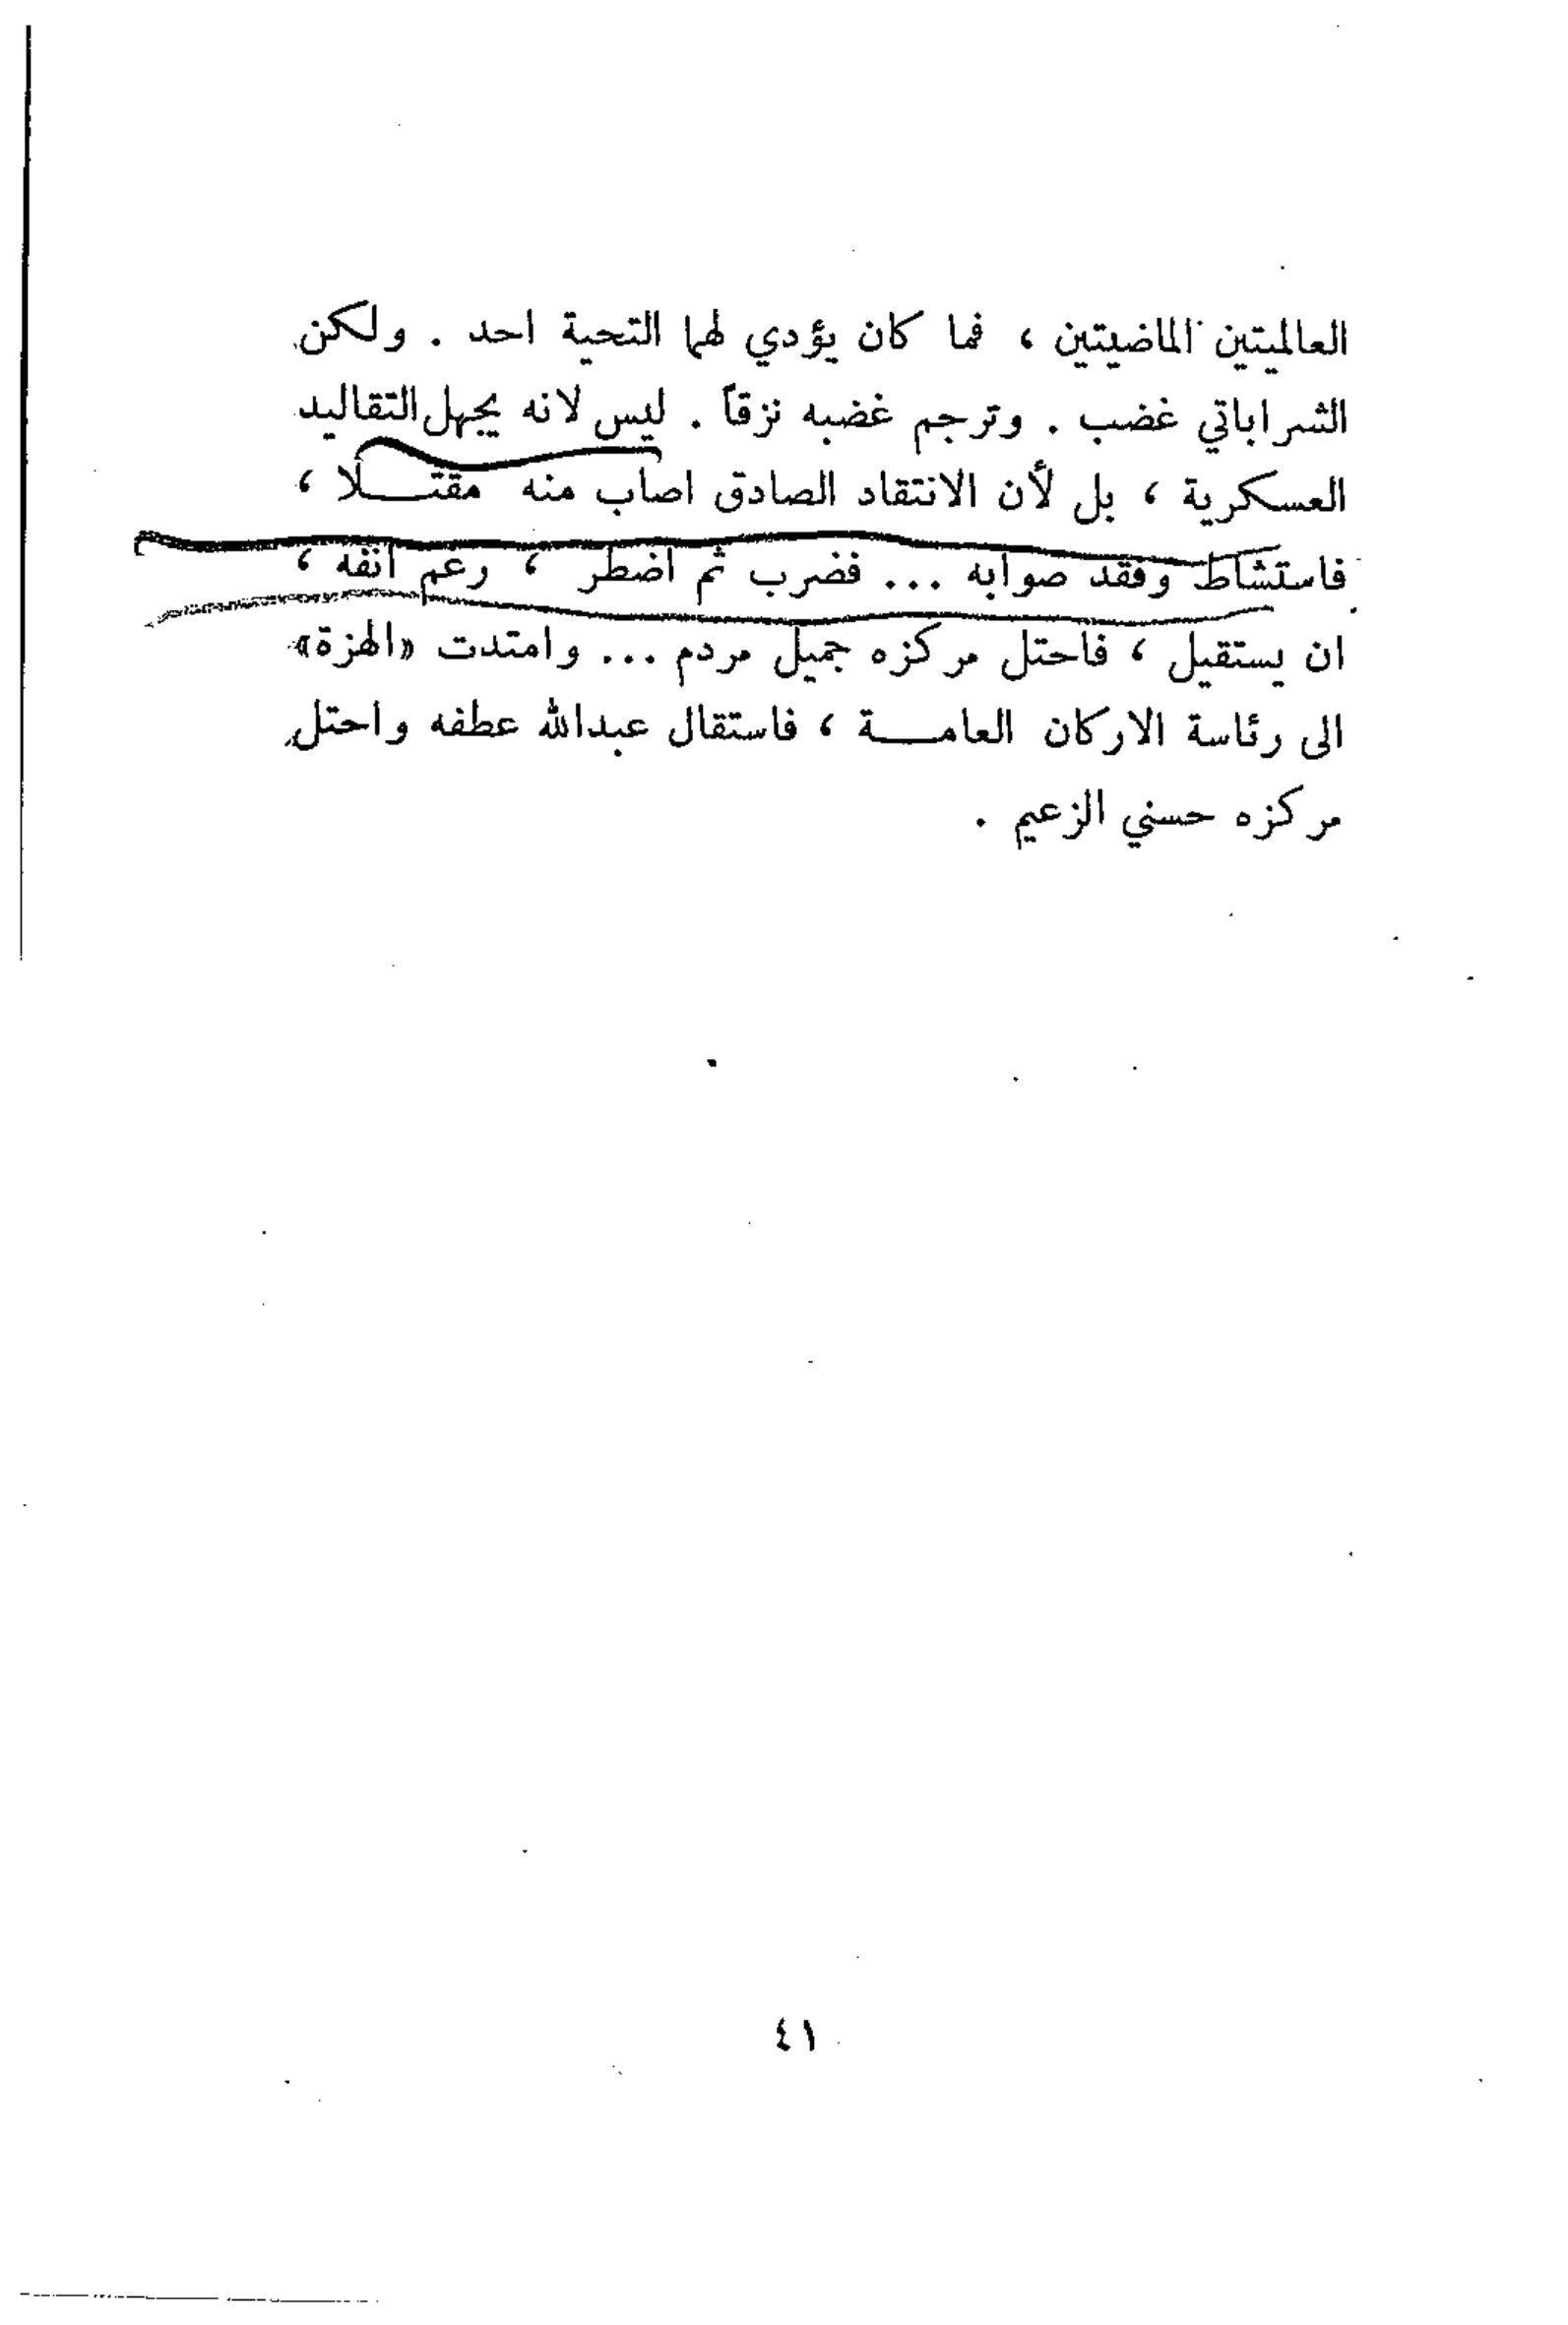 العالميتين الماضيتين ، فما كان يؤدي لهما التحية احد . ولكن
الشراباتي غضب . وترجم غضبه نزقاً . ليس لانه يجهل التقاليد
العسكرية ، بل لأن الانتقاد الصادق اصاب منه مقتـــلا ،
فاستشاط وفقد صوابه ... فضرب ثم اضطر ، رغم انفه ،
ان يستقيل ، فاحتل مركزه جميل مردم ... وامتدت «الهزة»
الى رئاسة الاركان العامـــة ، فاستقال عبدالله عطفه واحتل
مركزه حسني الزعيم .
٤١